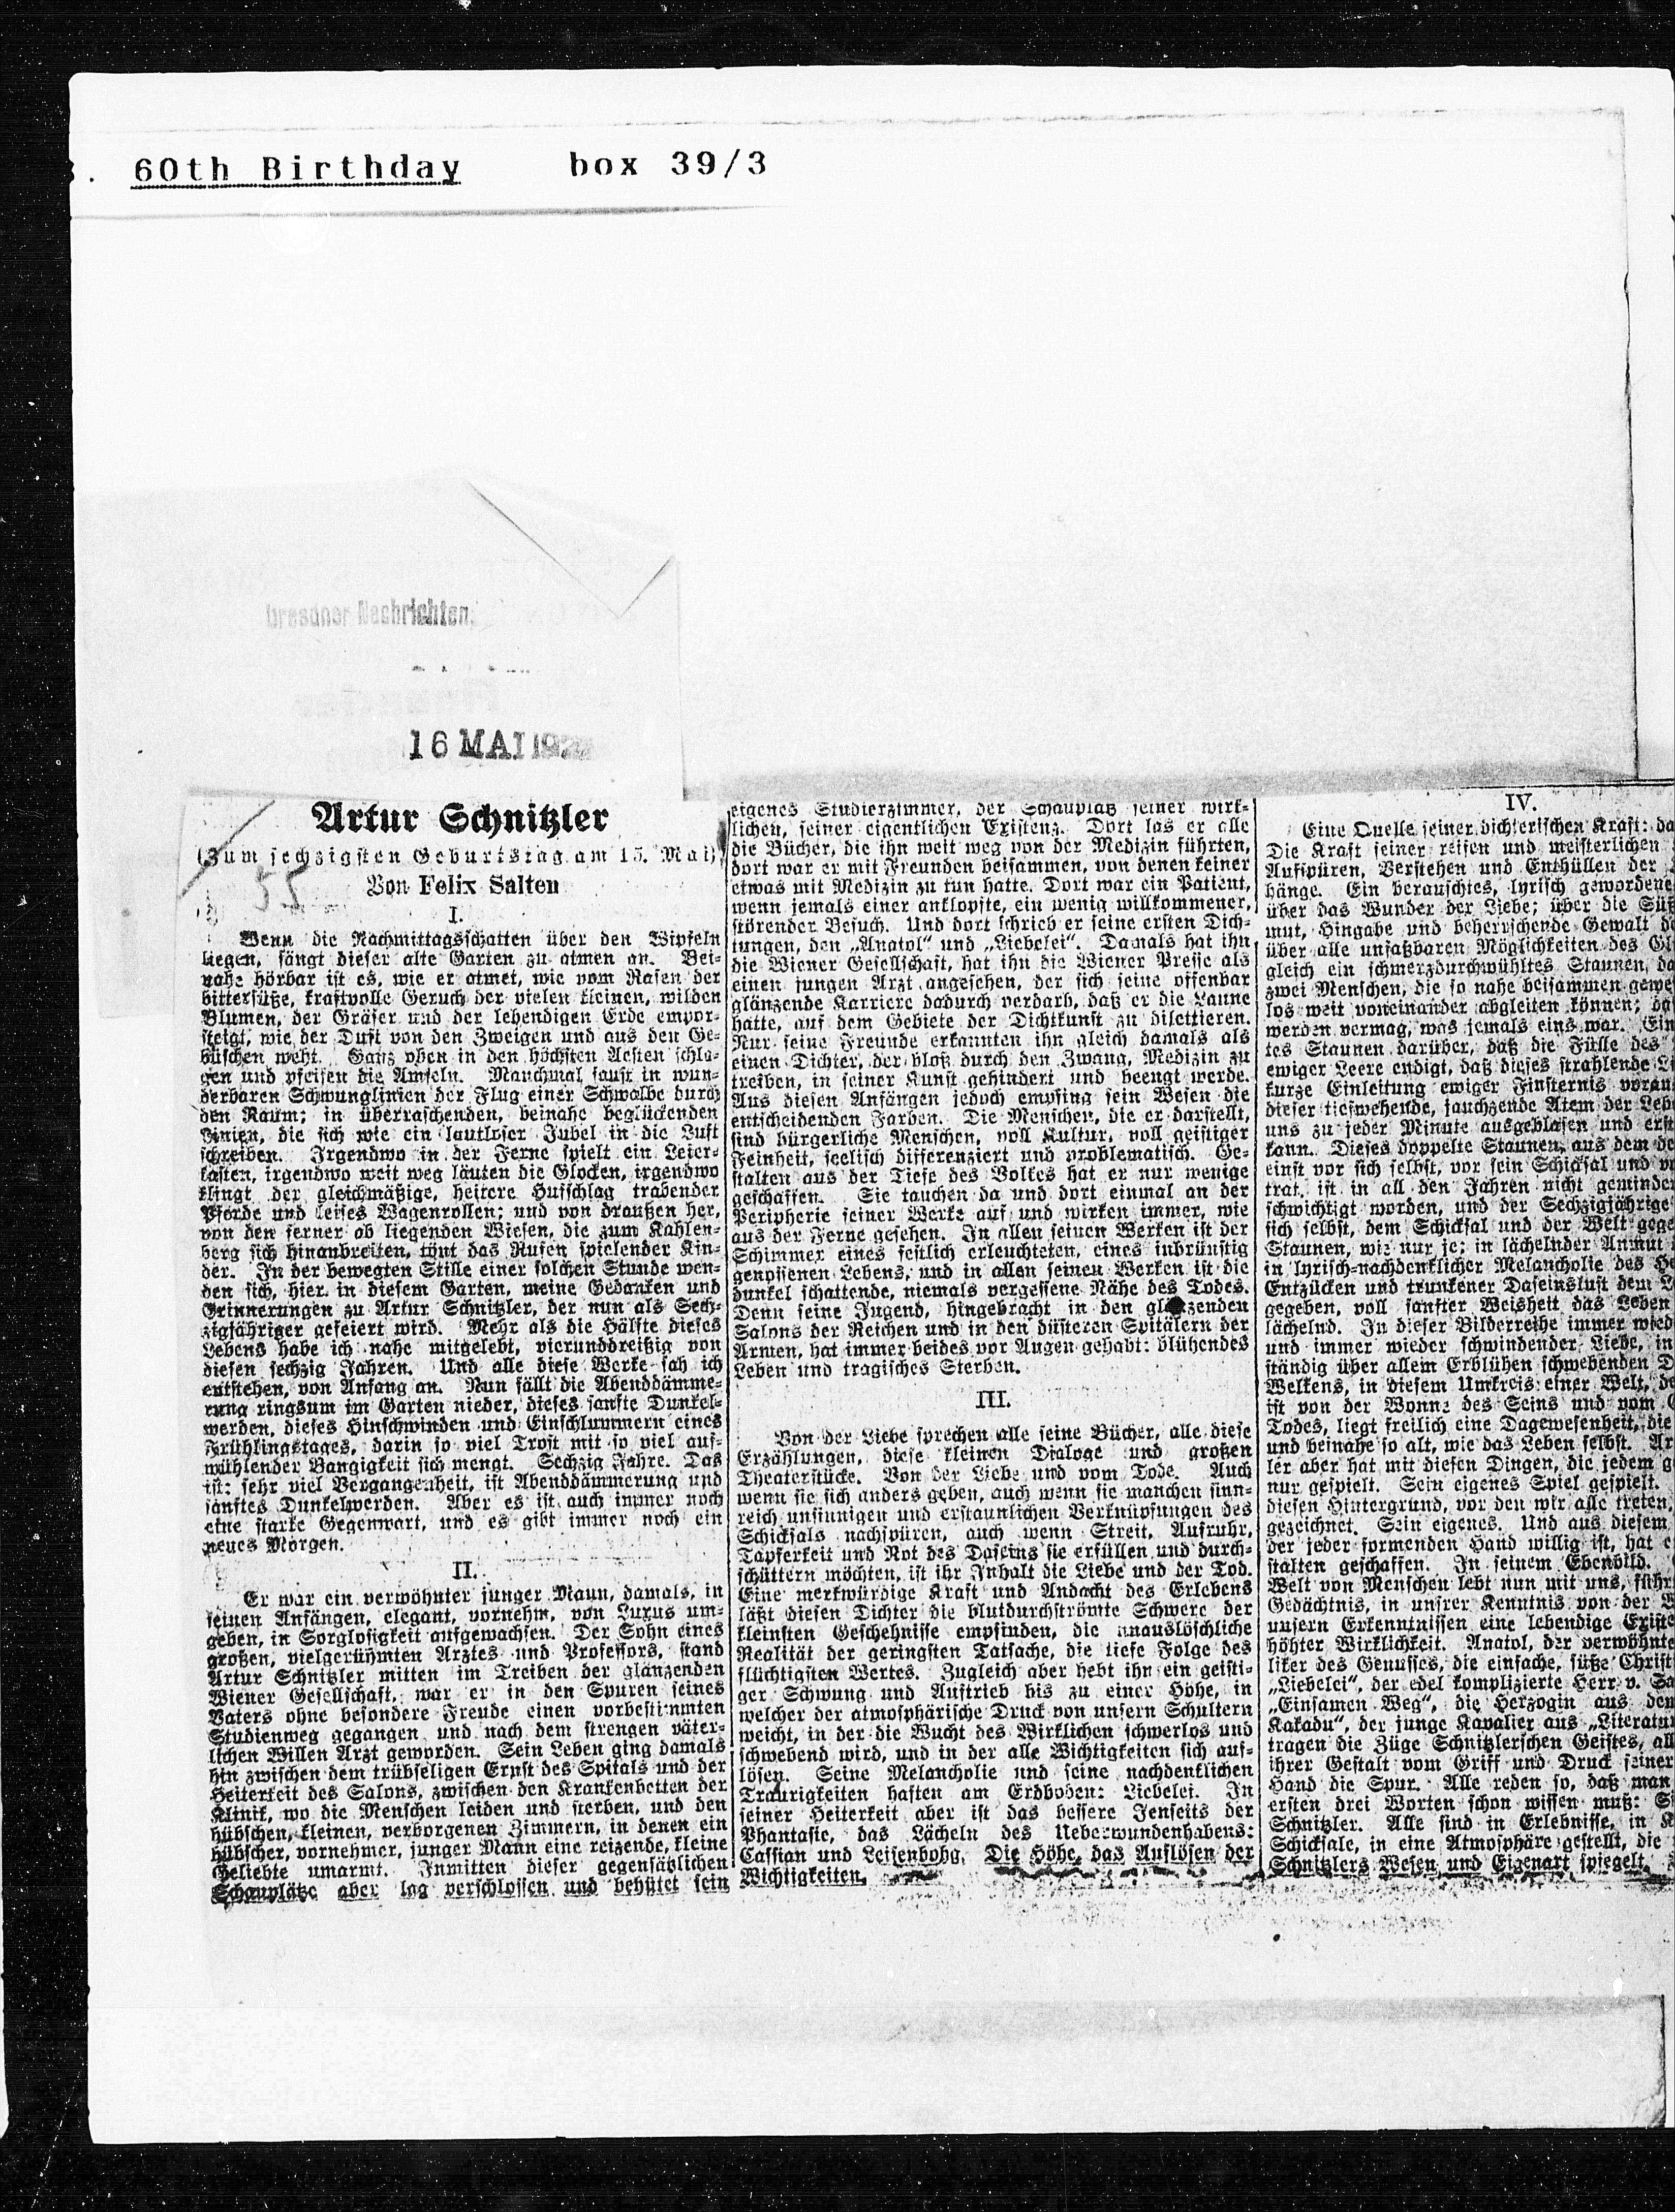 60th Birthday box 39/3
Dresdner Nachrichten
16 MAI 192
Artur Schnitzler
(Zum sechzigsten Geburtstag am 15. Mai)
55
Von Felix Salten
I.
Wenn die Nachmittagsschatten über den Wipfeln
liegen, fängt dieser alte Garten zu atmen an. Bei-
nahe hörbar ist es, wie er atmet, wie vom Rasen der
bittersüße, kraftvolle Geruch der vielen kleinen, wilden
Blumen, der Gräser und der lebendigen Erde empor-
steigt, wie der Duft von den Zweigen und aus den Ge-
büschen weht. Ganz oben in den höchsten Aesten schla-
gen und pfeifen die Amseln. Manchmal saust in wun-
derbaren Schwunglinien der Flug einer Schwalbe durch
den Raum; in überraschenden, beinahe beglückenden
Linien, die sich wie ein lautloser Jubel in die Luft
schreiben. Irgendwo in der Ferne spielt ein Leier-
kasten, irgendwo weit weg läuten die Glocken, irgendwo
klingt der gleichmäßige, heitere Hufschlag trabender
Pferde und leises Wagenrollen; und von draußen her,
von den ferner ab liegenden Wiesen, die zum Kahlen-
berg sich hinanbreiten, tönt das Rufen spielender Kin-
der. In der bewegten Stille einer solchen Stunde wen-
den sich, hier in diesem Garten, meine Gedanken und
Erinnerungen zu Artur Schnitzler, der nun als Sech-
zigjähriger gefeiert wird. Mehr als die Hälfte dieses
Lebens habe ich nahe mitgelebt, vierunddreißig von
diesen sechzig Jahren. Und alle diese Werke sah ich
entstehen, von Anfang an. Nun fällt die Abenddämme-
rung ringsum im Garten nieder, dieses sanfte Dunkel-
werden, dieses Hinschwinden und Einschlummern eines
Frühlingstages, darin so viel Trost mit so viel auf-
wühlender Bangigkeit sich mengt. Sechzig Jahre. Das
ist: sehr viel Vergangenheit, ist Abenddämmerung und
sanftes Dunkelwerden. Aber es ist auch immer noch
eine starke Gegenwart, und es gibt immer noch ein
neues Morgen.
II.
Er war ein verwöhnter junger Mann, damals, in
seinen Anfängen, elegant, vornehm, von Luxus um-
geben, in Sorglosigkeit aufgewachsen. Der Sohn eines
großen, vielgerühmten Arztes und Professors, stand
Artur Schnitzler mitten im Treiben der glänzenden
Wiener Gesellschaft, war er in den Spuren seines
Vaters ohne besondere Freude einen vorbestimmten
Studienweg gegangen und nach dem strengen väter-
lichen Willen Arzt geworden. Sein Leben ging damals
hin zwischen dem trübseligen Ernst des Spitals und der
Heiterkeit des Salons, zwischen den Krankenbetten der
Klinik, wo die Menschen leiden und sterben, und den
hübschen, kleinen, verborgenen Zimmern, in denen ein
hübscher, vornehmer, junger Mann eine reizende, kleine
Geliebte umarmt. Inmitten dieser gegensätzlichen
Schauplätze aber lag verschlossen und behütet sein
eigenes Studierzimmer, der Schauplatz seiner wirk-
lichen, seiner eigentlichen Existenz. Dort las er alle
die Bücher, die ihn weit weg von der Medizin führten,
dort war er mit Freunden beisammen, von denen keiner
etwas mit Medizin zu tun hatte. Dort war ein Patient,
wenn jemals einer anklopfte, ein wenig willkommener,
störender Besuch. Und dort schrieb er seine ersten Dich-
tungen, den „Anatol“ und „Liebelei“. Damals hat ihn
die Wiener Gesellschaft, hat ihn die Wiener Presse als
einen jungen Arzt angesehen, der sich seine offenbar
glänzende Karriere dadurch verdarb, daß er die Laune
hatte, auf dem Gebiete der Dichtkunst zu dilettieren.
Nur seine Freunde erkannten ihn gleich damals als
einen Dichter, der bloß durch den Zwang, Medizin zu
treiben, in seiner Kunst gehindert und beengt werde.
Aus diesen Anfängen jedoch empfing sein Wesen die
entscheidenden Farben. Die Menschen, die er darstellt,
sind bürgerliche Menschen, voll Kultur, voll geistiger
Feinheit, seelisch differenziert und problematisch. Ge-
stalten aus der Tiefe des Volkes hat er nur wenige
geschaffen. Sie tauchen da und dort einmal an der
Peripherie seiner Werke auf und wirken immer, wie
aus der Ferne gesehen. In allen seinen Werken ist der
Schimmer eines festlich erleuchteten, eines inbrünstig
genossenen Lebens, und in allen seinen Werken ist die
dunkel schattende, niemals vergessene Nähe des Todes.
Denn seine Jugend, hingebracht in den glänzenden
Salons der Reichen und in den düsteren Spitälern der
Armen, hat immer beides vor Augen gehabt: blühendes
Leben und tragisches Sterben.
III.
Von der Liebe sprechen alle seine Bücher, alle diese
Erzählungen, diese kleinen Dialoge und großen
Theaterstücke. Von der Liebe und vom Tode. Auch
wenn sie sich anders geben, auch wenn sie manchen sinn-
reich unsinnigen und erstaunlichen Verknüpfungen des
Schicksals nachspüren, auch wenn Streit, Aufruhr,
Tapferkeit und Not des Daseins sie erfüllen und durch-
schüttern möchten, ist ihr Inhalt die Liebe und der Tod.
Eine merkwürdige Kraft und Andacht des Erlebens
läßt diesen Dichter die blutdurchströmte Schwere der
kleinsten Geschehnisse empfinden, die unauslöschliche
Realität der geringsten Tatsache, die tiefe Folge des
flüchtigsten Wertes. Zugleich aber hebt ihn ein geisti-
ger Schwung und Auftrieb bis zu einer Höhe, in
welcher der atmosphärische Druck von unsern Schultern
weicht, in der die Wucht des Wirklichen schwerlos und
schwebend wird, und in der alle Wichtigkeiten sich auf-
lösen. Seine Melancholie und seine nachdenklichen
Traurigkeiten haften am Erdboden: Liebelei. In
seiner Heiterkeit aber ist das bessere Jenseits der
Phantasie, das Lächeln des Ueberwundenhabens:
Cassian und Leisenbohg. Die Höhe, das Auflösen der
Wichtigkeiten.
IV.
Eine Quelle seiner dichterischen Kraft: da
Die Kraft seiner reifen und meisterlichen
Aufspüren, Verstehen und Enthüllen der
hänge. Ein berauschtes, lyrisch gewordene
über das Wunder der Liebe; über die Süß
mut, Hingabe und beherrschende Gewalt de
über alle unfaßbaren Möglichkeiten des Gl
gleich ein schmerzdurchwühltes Staunen, da
zwei Menschen, die so nahe beisammen gewe
los weit voneinander abgleiten können; da
werden vermag, was jemals eins war. Ein
tes Staunen darüber, daß die Fülle des
ewiger Leere endigt, daß dieses strahlende L
kurze Einleitung ewiger Finsternis voran
dieser tiefwehende, jauchzende Atem der Lebe
uns zu jeder Minute ausgeblasen und erst
kann. Dieses doppelte Staunen, aus dem de
einst vor sich selbst, vor sein Schicksal und v
trat, ist in all den Jahren nicht geminder
schwichtigt worden, und der Sechzigjährige
sich selbst, dem Schicksal und der Welt gege
Staunen, wie nur je; in lächelnder Anmut
in lyrisch-nachdenklicher Melancholie des He
Entzücken und trunkener Daseinslust dem L
gegeben, voll sanfter Weisheit das Leben
lächelnd. In dieser Bilderreihe immer wied
und immer wieder schwindender Liebe, in
ständig über allem Erblühen schwebenden D
Welkens, in diesem Umkreis einer Welt, de
ist von der Wonne des Seins und vom
Todes, liegt freilich eine Dagewesenheit, die
und beinahe so alt, wie das Leben selbst. Ar
ler aber hat mit diesen Dingen, die jedem g
nur gespielt. Sein eigenes Spiel gespielt.
diesen Hintergrund, vor den wir alle treten,
gezeichnet. Sein eigenes. Und aus diesem
der jeder formenden Hand willig ist, hat e
stalten geschaffen. In seinem Ebenbild.
Welt von Menschen lebt nun mit uns, führ
Gedächtnis, in unsrer Kenntnis von der W
unsern Erkenntnissen eine lebendige Existe
höhter Wirklichkeit. Anatol, der verwöhnte
liker des Genusses, die einfache, süße Christ
„Liebelei“, der edel komplizierte Herr v. Sa
„Einsamen Weg“, die Herzogin aus dem
Kakadu“, der junge Kavalier aus „Literatur
tragen die Züge Schnitzlerschen Geistes, all
ihrer Gestalt vom Griff und Druck seiner
Hand die Spur. Alle reden so, daß man
ersten drei Worten schon wissen muß: S
Schnitzler. Alle sind in Erlebnisse, in K
Schicksale, in eine Atmosphäre gestellt, die
Schnitzlers Wesen und Eigenart spiegelt.